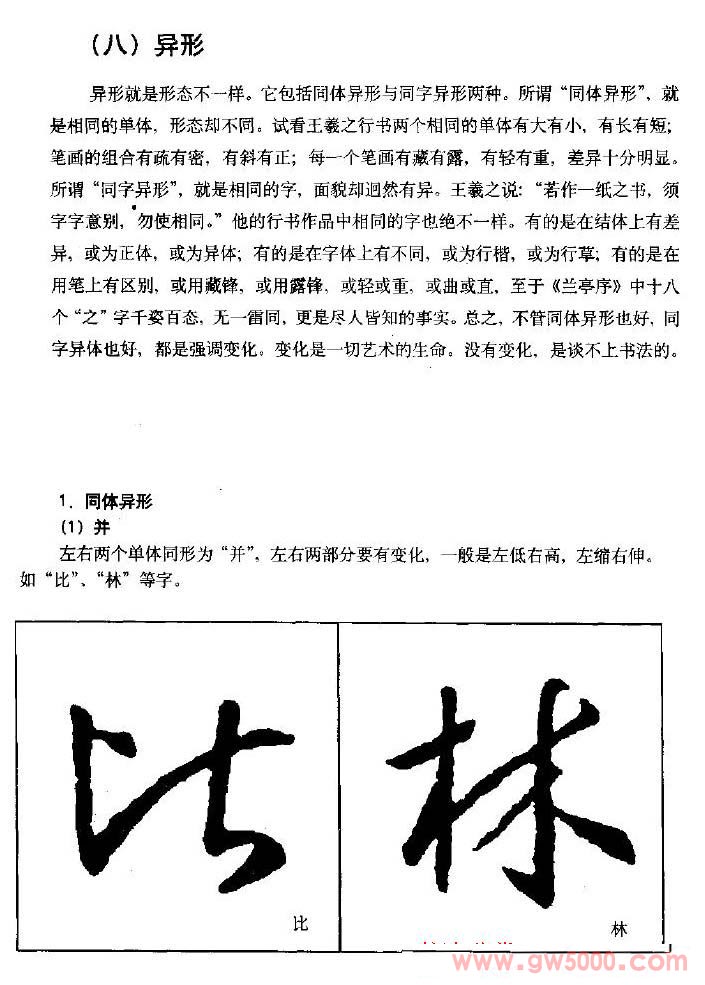 （八）异形
异形就是形态不一样。它包括同体异形与同字异形两种。所谓“同体异形”，就
是相同的单体，形态却不同。试看王羲之行书两个相同的单体有大有小，有长有短；
笔画的组合有疏有密，有斜有正；每一个笔画有藏有露，有轻有重，差异十分明显。
所谓“同字异形”，就是相同的字，面貌却迥然有异。王羲之说：“若作一纸之书，须
字字意别，勿使相同。”他的行书作品中相同的字也绝不一样。有的是在结体上有差
异，或为正体，或为异体；有的是在字体上有不同，或为行楷，或为行草；有的是在
用笔上有区别，或用藏锋，或用露锋，或轻或重，或曲或直，至于《兰亭序》中十八
个“之”字千姿百态，无一雷同，更是尽人皆知的事实。总之，不管同体异形也好，同
字异体也好，都是强调变化。变化是一切艺术的生命。没有变化，是谈不上书法的。
1．同体异形
（1）并
左右两个单体同形为“并”，左右两部分要有变化，一般是左低右高，左缩右伸。
如“比”、“林”等字。
比 林
比 林
www.gw5000.com